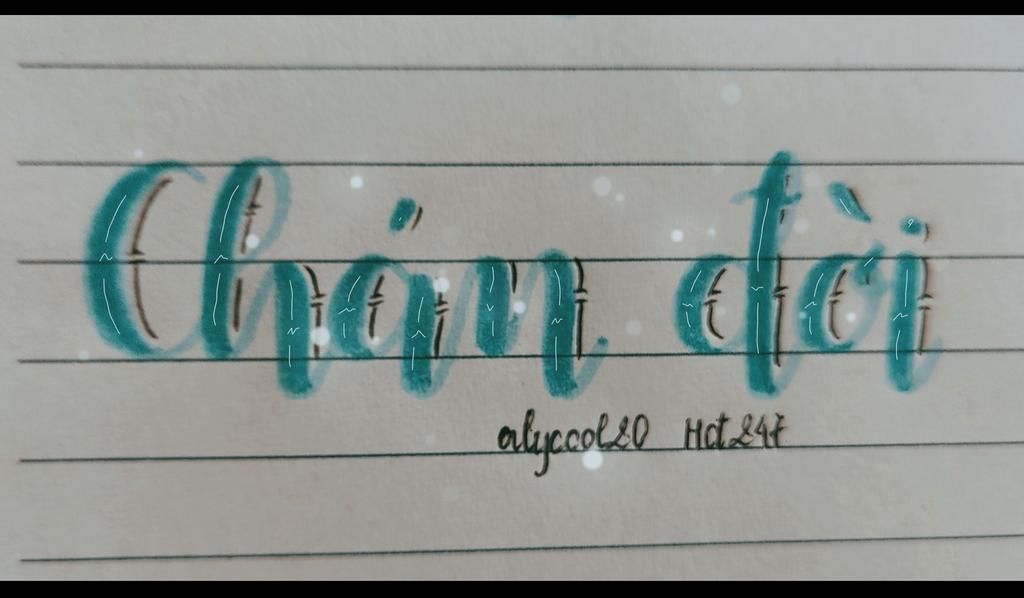 Chán đời
alyccol20 Hdt247